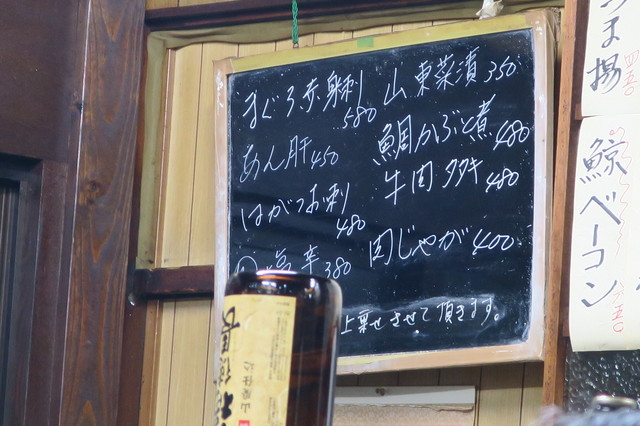 まぐろ赤身刺 580
あん肝 450
はがつお刺 480
塩辛 380
山東菜漬 350
鯛かぶと煮 480
牛肉タタキ 480
肉じゃが 400
上乗せさせて頂きます。
ま揚
鯨ベーコン
山廃仕込